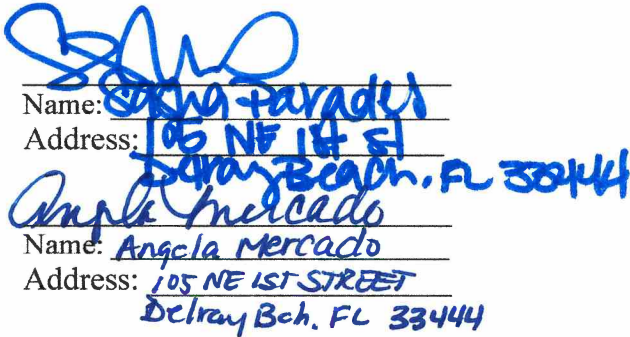 Name: Sasha Parades
Address: 105 NE 1st St
Delray Beach, FL 33444
Angela Mercado
Name: Angela Mercado
Address: 105 NE 1ST STREET
Delray Bch, FL 33444